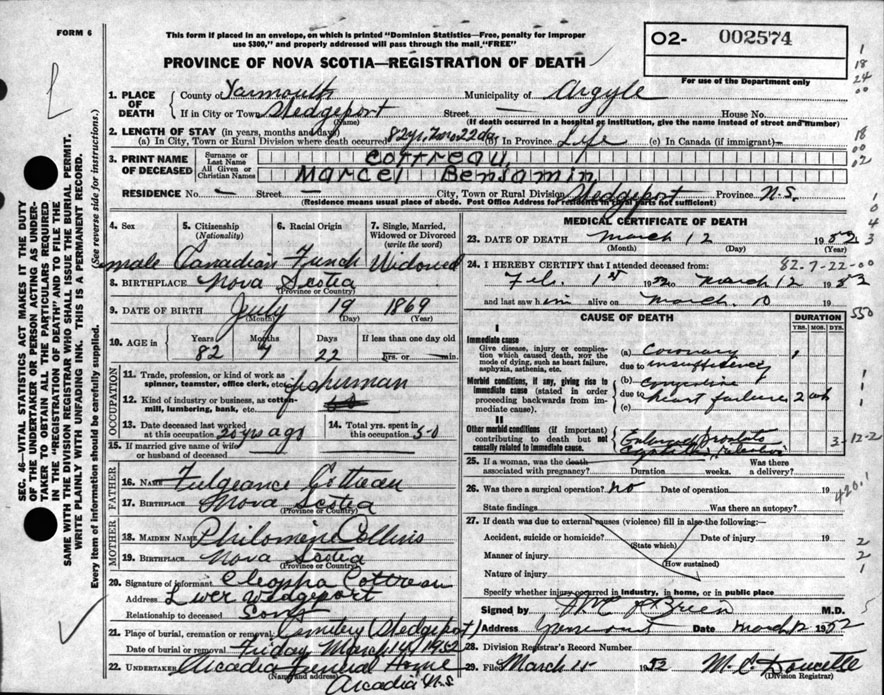 FORM 6
This form if placed in an envelope, on which is printed "Dominion Statistics—Free, penalty for improper
use $300," and properly addressed will pass through the mail "FREE"
O2- 002574
For use of the Department only
PROVINCE OF NOVA SCOTIA—REGISTRATION OF DEATH
SEC. 46—VITAL STATISTICS ACT MAKES IT THE DUTY
OF THE UNDERTAKER OR PERSON ACTING AS UNDER-
TAKER TO OBTAIN ALL THE PARTICULARS REQUIRED
IN THE "REGISTRATION OF DEATH" AND TO FILE THE
SAME WITH THE DIVISION REGISTRAR WHO SHALL ISSUE THE BURIAL PERMIT.
WRITE PLAINLY WITH UNFADING INK. THIS IS A PERMANENT RECORD.
Every item of information should be carefully supplied. (See reverse side for instructions.)
1. PLACE OF DEATH
County of Yarmouth Municipality of Argyle
If in City or Town Wedgeport Street House No.
(Name) (If death occurred in a hospital or institution, give the name instead of street and number)
2. LENGTH OF STAY (in years, months and days)
(a) In City, Town or Rural Division where death occurred 82 yrs 7 mo 22 da (b) In Province Life (c) In Canada (if immigrant)—
3. PRINT NAME OF DECEASED
Surname or Last Name Cottreau
All Given or Christian Names Marcel Benjamin
RESIDENCE No. — Street — City, Town or Rural Division Wedgeport Province N.S.
(Residence means usual place of abode. Post Office Address for residents in rural parts not sufficient)
4. Sex
male
5. Citizenship (Nationality)
Canadian
6. Racial Origin
French
7. Single, Married, Widowed or Divorced (write the word)
Widowed
8. BIRTHPLACE Nova Scotia
(Province or Country)
9. DATE OF BIRTH July 19 1869
(Month) (Day) (Year)
10. AGE in Years Months Days If less than one day old
82 7 22 hrs. or min.
OCCUPATION
11. Trade, profession, or kind of work as
spinner, teamster, office clerk, etc. fisherman
12. Kind of industry or business, as cotton-
mill, lumbering, bank, etc.
13. Date deceased last worked
at this occupation 20 yrs ago
14. Total yrs. spent in
this occupation 50
15. If married give name of wife
or husband of deceased
FATHER
16. Name Fulgeance Cottreau
17. Birthplace Nova Scotia
(Province or Country)
MOTHER
18. MAIDEN NAME Philomene Collins
19. Birthplace Nova Scotia
(Province or Country)
20. Signature of informant Cleopha Cottreau
Address Lower Wedgeport
Relationship to deceased Son
21. Place of burial, cremation or removal Cemetery (Wedgeport)
Date of burial or removal Friday March 14, 1952
22. UNDERTAKER Arcadia Funeral Home
(Name and address)
Arcadia N.S.
MEDICAL CERTIFICATE OF DEATH
23. DATE OF DEATH March 12 1952
(Month) (Day) (Year)
24. I HEREBY CERTIFY that I attended deceased from: 82-7-22-00
Feb. 1st 1952 to March 12 1952
and last saw him alive on March 10 19
CAUSE OF DEATH DURATION
YRS. MOS. DYS.
I
Immediate cause
Give disease, injury or complica-
tion which caused death, NOT the
mode of dying, such as heart failure,
asphyxia, asthenia, etc.
(a) Coronary
due to insufficiency
Morbid conditions, if any, giving rise to
immediate cause (stated in order
proceeding backwards from im-
mediate cause).
(b) Congestive
due to heart failure 2 wk
(c)
II
Other morbid conditions (if important)
contributing to death but not
causally related to immediate cause.
Enlarged Prostate
25. If a woman, was the death Was there
associated with pregnancy? Duration weeks. a delivery?
26. Was there a surgical operation? no Date of operation 19
State findings Was there an autopsy?
27. If death was due to external causes (violence) fill in also the following:—
Accident, suicide or homicide? Date of injury 19
(State which)
Manner of injury
(How sustained)
Nature of injury
Specify whether injury occurred in industry, in home, or in public place
Signed by O'Brien M.D.
Address Yarmouth Date March 12 1952
28. Division Registrar's Record Number
29. Filed March 15 1952 M. C. Doucette
(Division Registrar)
550
420.1